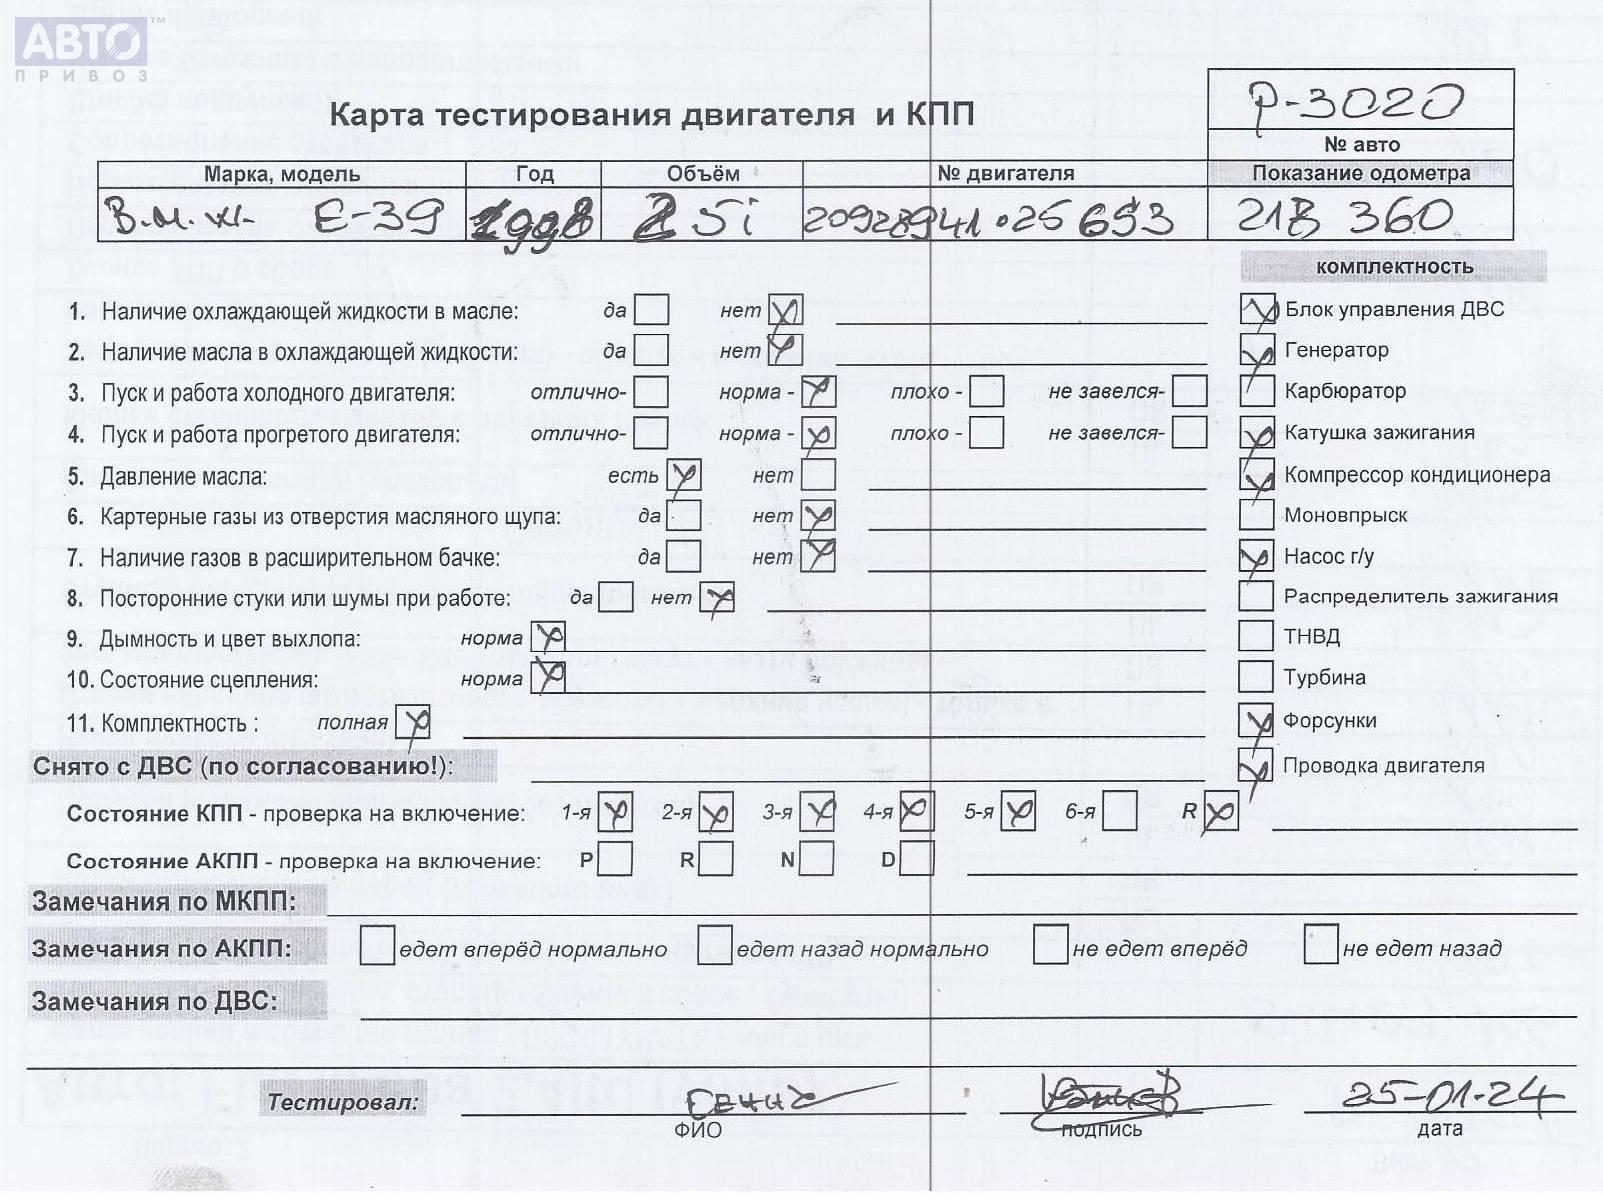 АВТО™
ПРИВОЗ
Р-3020
Карта тестирования двигателя и КПП
№ авто
Марка, модель Год Объём № двигателя Показание одометра
В.М.Ж. Е-39 1998 2 5i 20928941.25 6S3 218 360
комплектность
1. Наличие охлаждающей жидкости в масле: да нет Блок управления ДВС
2. Наличие масла в охлаждающей жидкости: да нет Генератор
3. Пуск и работа холодного двигателя: отлично- норма - плохо - не завелся- Карбюратор
4. Пуск и работа прогретого двигателя: отлично- норма - плохо - не завелся- Катушка зажигания
5. Давление масла: есть нет Компрессор кондиционера
6. Картерные газы из отверстия масляного щупа: да нет Моновпрыск
7. Наличие газов в расширительном бачке: да нет Насос г/у
8. Посторонние стуки или шумы при работе: да нет Распределитель зажигания
9. Дымность и цвет выхлопа: норма ТНВД
10. Состояние сцепления: норма Турбина
11. Комплектность : полная Форсунки
Снято с ДВС (по согласованию!): Проводка двигателя
Состояние КПП - проверка на включение: 1-я 2-я 3-я 4-я 5-я 6-я R
Состояние АКПП - проверка на включение: P R N D
Замечания по МКПП:
Замечания по АКПП: едет вперёд нормально едет назад нормально не едет вперёд не едет назад
Замечания по ДВС:
Тестировал: 25-01-24
ФИО подпись дата